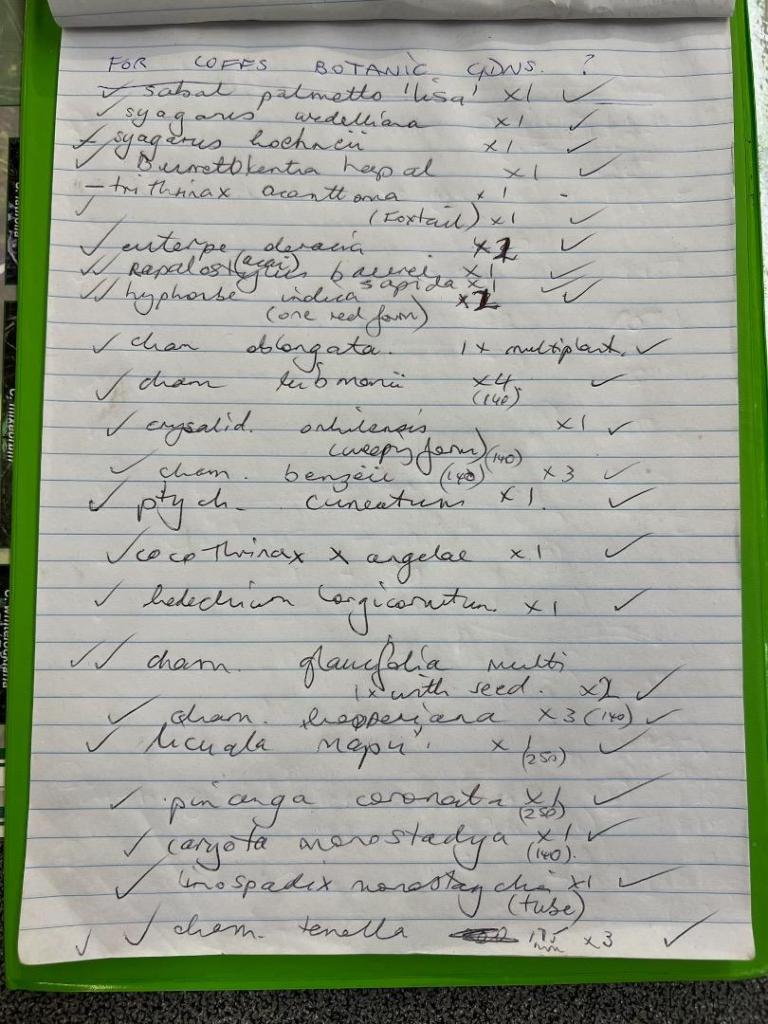 FOR COFFS BOTANIC GDNS. ?
✓ sabal palmetto 'lisa' x1 ✓
✓ syagarus wedelliana x1 ✓
✓ syagarus x1 ✓
✓ Burrettokentia x1 ✓
– trithrinax x1 -
✓ (Foxtail) x1 ✓
✓ euterpe oleracia x2 ✓
(acai)
✓✓ Rapalostylus baueri x1 ✓
sapida x1 ✓
✓✓ hyphorbe indica x2 ✓
(one red form)
✓ cham oblongata. 1 x multiplant. ✓
✓ cham x4 ✓
(140)
✓ crysalid. x1 ✓
(weepy form) (140)
✓ cham. benzeii (140) x3 ✓
✓ ptych. cuneatum x1. ✓
✓ cocothrinax x angelae x1 ✓
✓ hedechium longicornutum. x1 ✓
✓✓ cham. glaucifolia multi
1x with seed. x2 ✓
✓ cham. hooperiana x3 (140) ✓
✓ licuala mapu' x1 ✓
(250)
✓ pinanga coronata x1 ✓
(250)
✓ caryota monostadya x1 ✓
(140).
✓ linospadix monostaychia x1 ✓
(tube)
✓ ✓ cham. tenella 175 mm x3 ✓